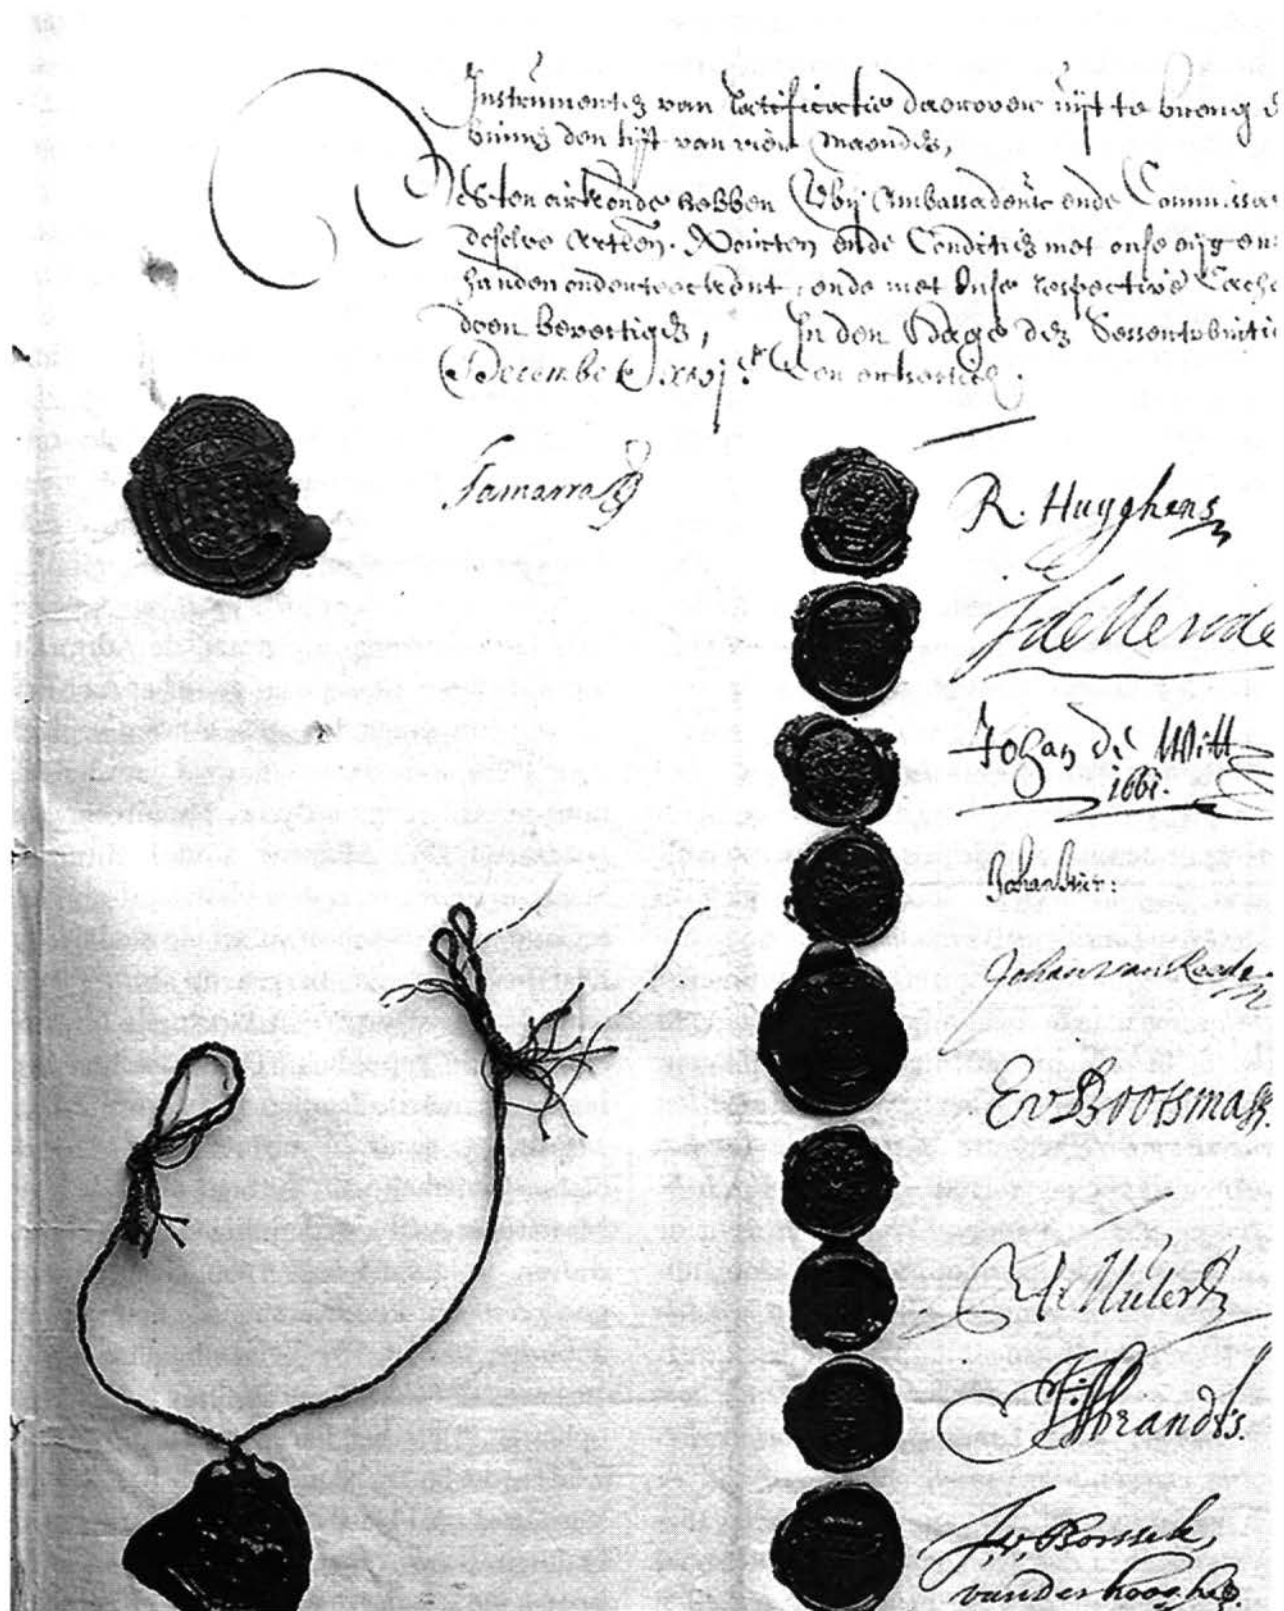 Instrumenten van Ratificatie daerover uijt te breng
binnen den tijt van vier maenden,
ten oirkonde hebben Wij Ambassadeur ende Commissa
deselve Artlen. Poincten ende Conditien met onse eijgen
handen onderteeckent, ende met onse respective Cache
doen bevestigen, In den Hage den Sessentwintich
December
Gamarra
R. Huyghens
J de Merode
Johan de Witt
1661.
Johan van Reede
E v Bootsma
Mulert
Isbrandts.
J. v. Borssele,
vander hooghe.